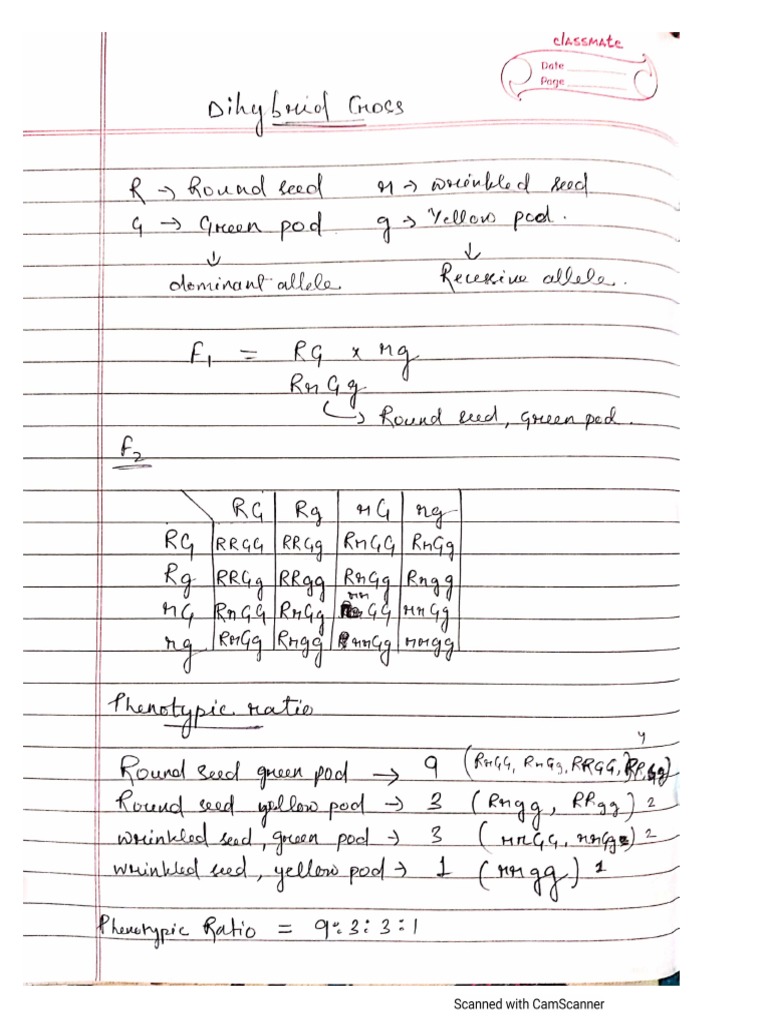 classmate
Date
Page
Dihybrid Cross
R → Round seed r → wrinkled seed
G → Green pod g → Yellow pod.
↓ ↓
dominant allele Recessive allele.
F1 = RG x rg
RrGg
↳ Round seed, Green pod.
F2
RG Rg rG rg
RG RRGG RRGg RrGG RrGg
Rg RRGg RRgg RrGg Rrgg
rG RrGG RrGg rrGG rrGg
rg RrGg Rrgg rrGg rrgg
Phenotypic ratio
Round seed green pod → 9 (RrGG, RrGg, RRGG, RRGg) 4
Round seed yellow pod → 3 (Rrgg, RRgg) 2
wrinkled seed, green pod → 3 (rrGG, rrGg) 2
wrinkled seed, yellow pod → 1 (rrgg) 1
Phenotypic Ratio = 9:3:3:1
Scanned with CamScanner